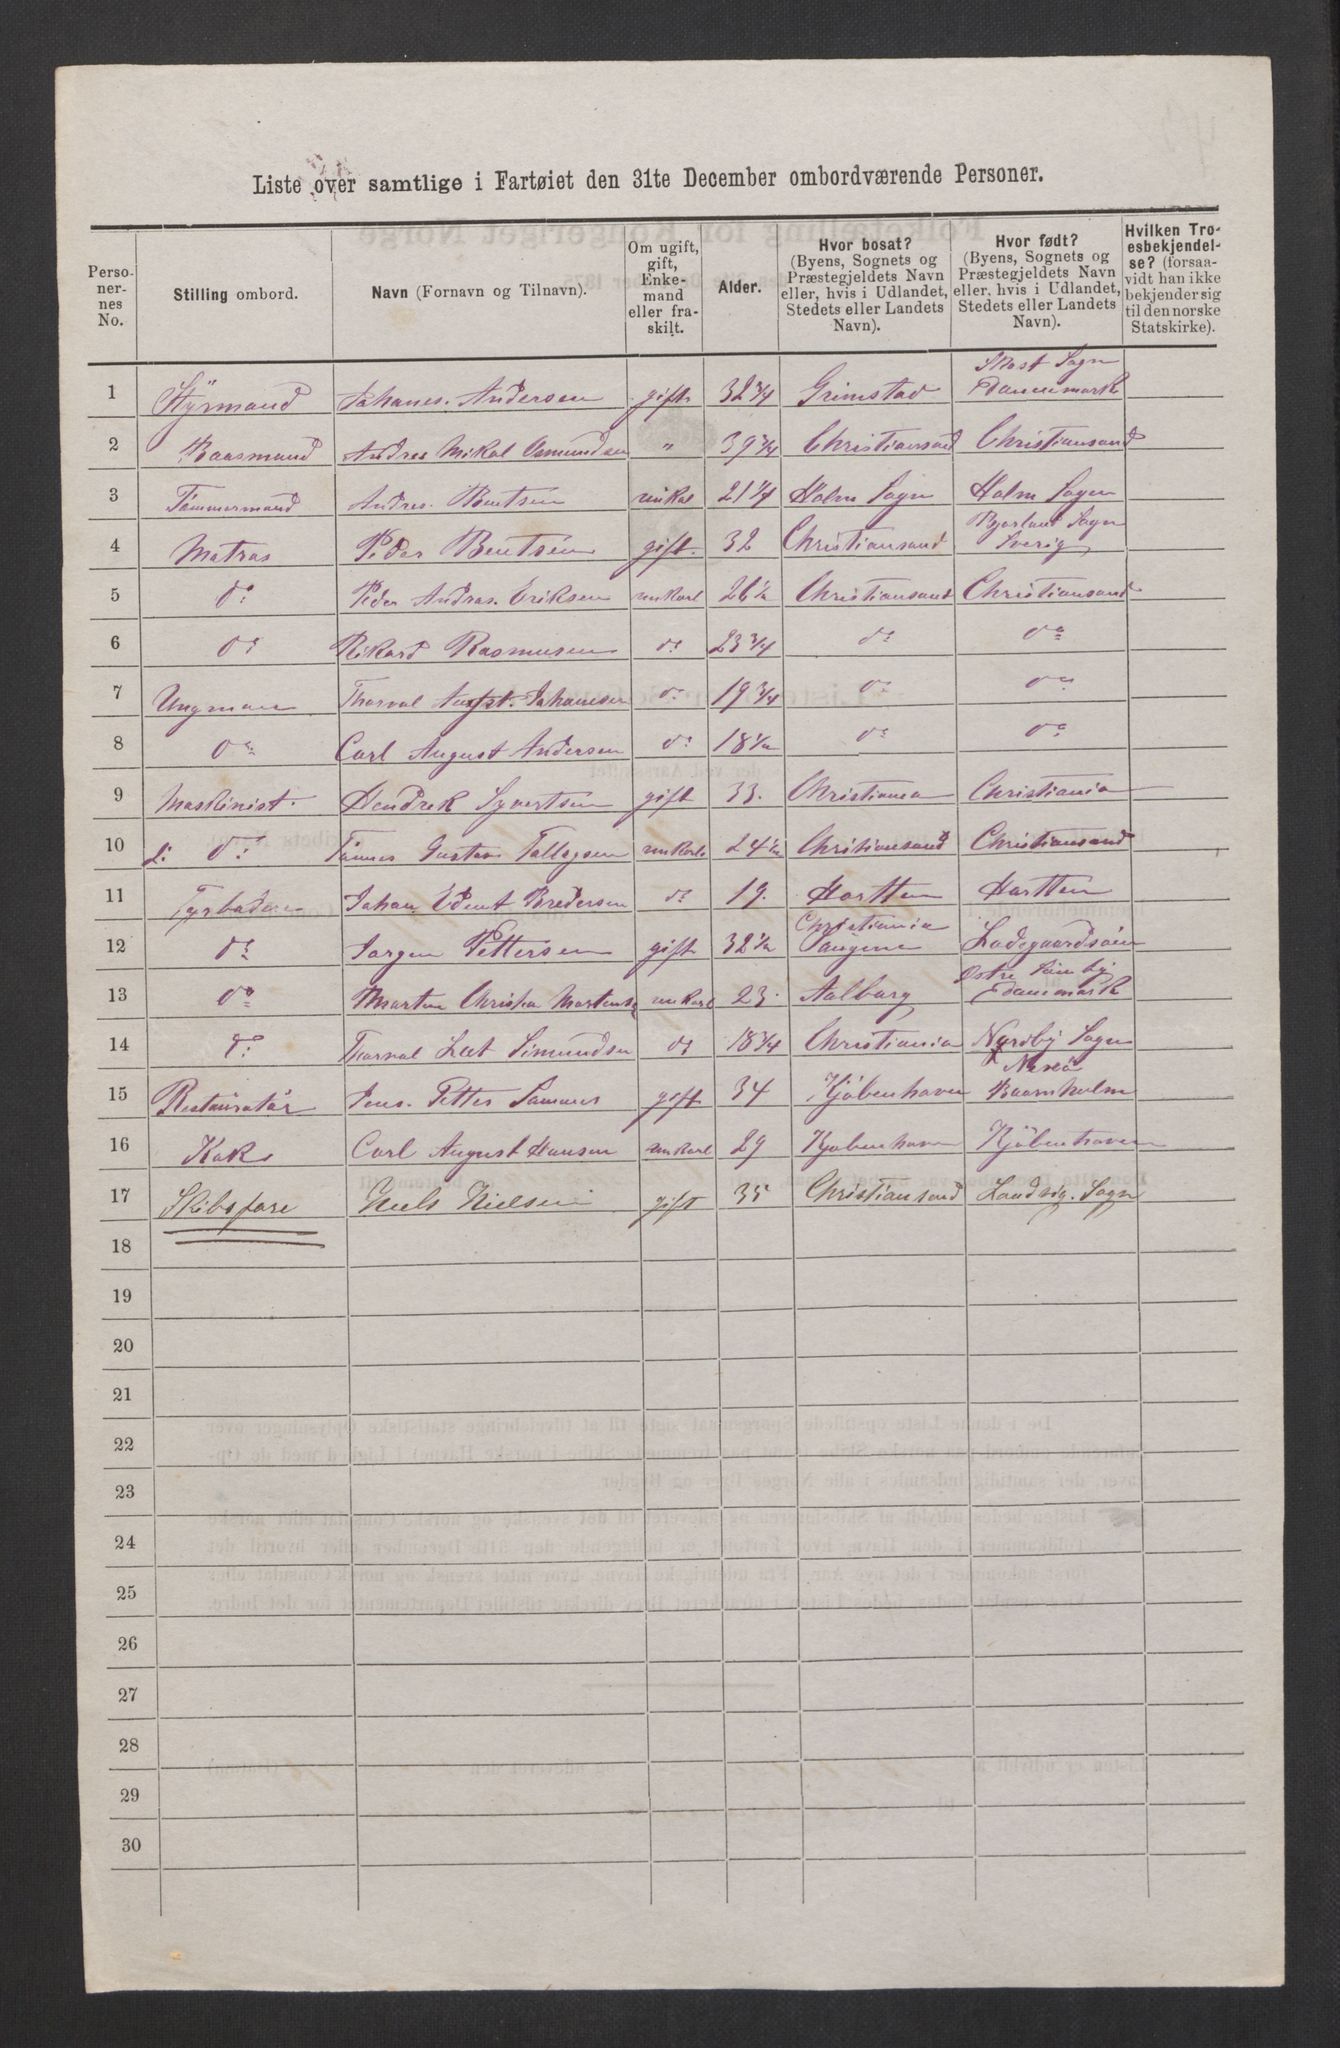 Liste over samtlige i Fartøiet den 31te December ombordværende Personer.
Personernes No. | Stilling ombord. | Navn (Fornavn og Tilnavn). | Om ugift, gift, Enkemand eller fraskilt. | Alder. | Hvor bosat? (Byens, Sognets og Præstegjeldets Navn eller, hvis i Udlandet, Stedets eller Landets Navn). | Hvor født? (Byens, Sognets og Præstegjeldets Navn eller, hvis i Udlandet, Stedets eller Landets Navn). | Hvilken Troesbekjendelse? (forsaavidt han ikke bekjender sig til den norske Statskirke).
1 Styrmand Johanes. Andersen gift 32 3/4 Grimstad Skast Sogn Danemark
2 Baasmand Andres Mikal Osmundsen " 39 3/4 Christiansand Christiansand
3 Tømmermand Andres. Bentsen unkal 21 1/4 Holm Sogn Holm Sogn
4 Matros Peder Bentsen gift. 32 Christiansand Bjorlant Sogn Sverig
5 do Peder Andras. Eriksen unkarl 26 1/2 Christiansand Christiansand
6 do Rikard Rasmusen do 23 3/4 do do
7 Ungman Thorval August. Johansen do 19 3/4 do do
8 do Carl August Andersen do 18 1/2 do do
9 Maskinist. Hendrek Syvertsen gift 33. Christiania Christiania
10 2: do Tønnes Gustav Tallagsen unkarl 24 1/2 Christiansand Christiansand
11 Fyrbøder Johan Edent Bredersen do 19. Hortten Hortten
12 do Jorgen Pettersen gift 32 1/2 Christiania Tangene Ladegaardsøen
13 do Marten Christia Martense unkarl 23. Aalborg Østre Sønby Danemark
14 do Thorval Leet Simundsen do 18 3/4 Christiania Nordby Sogn
15 Restauratør Jens. Petter Sommer gift 34 Kjøbenhaven Nexø Baarnholm
16 Kok Carl August Hansen unkarl 29 Kjøbenhaven Kjøbenhaven
17 Skibsføre Niels Nielsen gift 35 Christiansand Landvig. Sogn
18
19
20
21
22
23
24
25
26
27
28
29
30